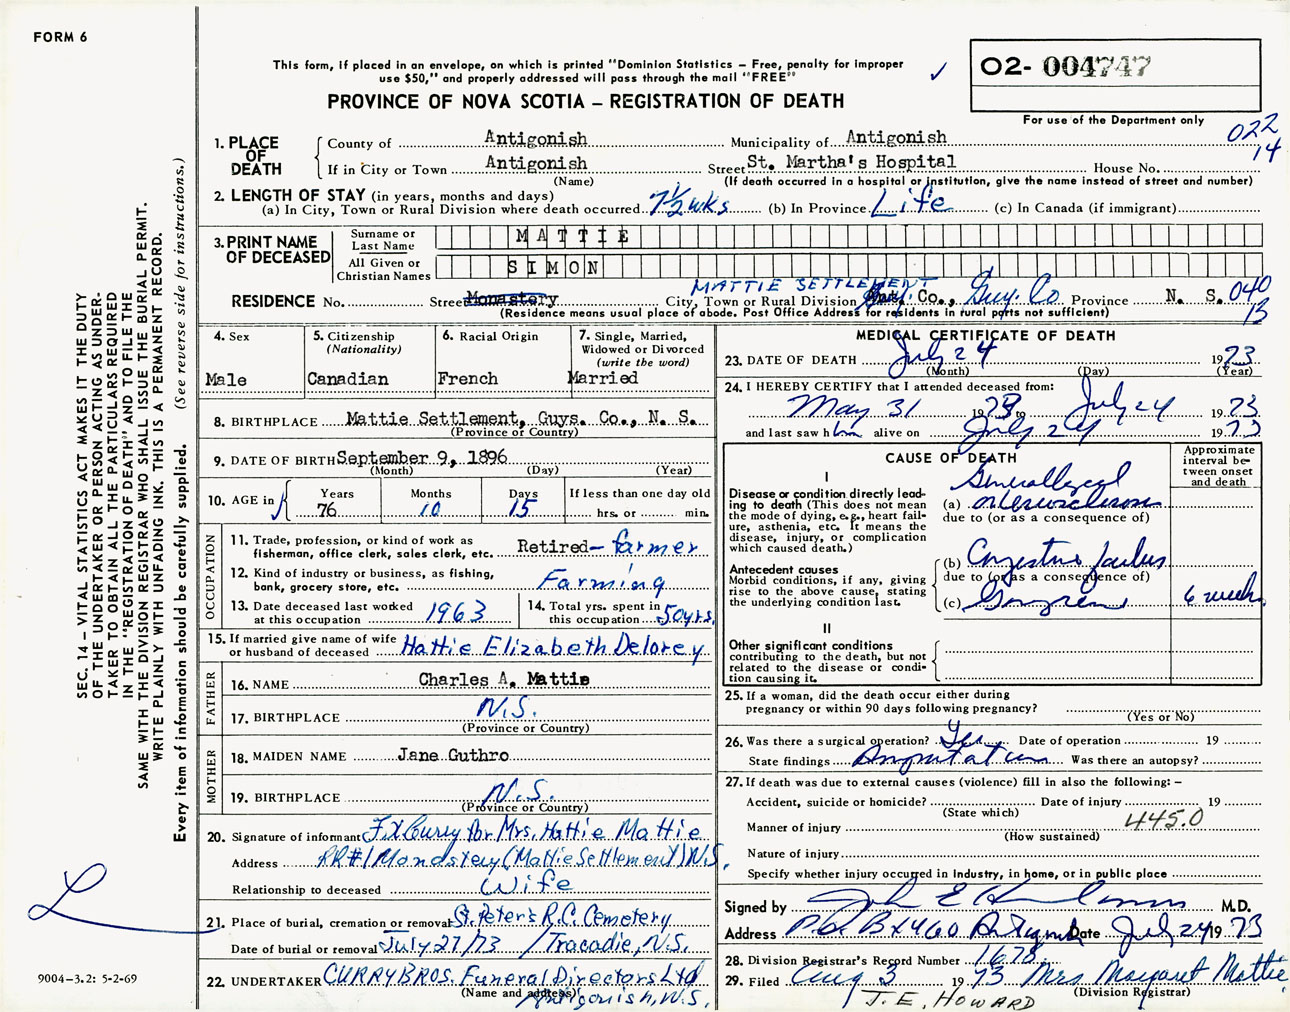 FORM 6
This form, if placed in an envelope, on which is printed "Dominion Statistics – Free, penalty for improper
use $50," and properly addressed will pass through the mail "FREE"
✓
O2- 004747
PROVINCE OF NOVA SCOTIA – REGISTRATION OF DEATH
For use of the Department only
022
14
1. PLACE OF DEATH
County of Antigonish Municipality of Antigonish
If in City or Town Antigonish Street St. Martha's Hospital House No.
(Name) (If death occurred in a hospital or institution, give the name instead of street and number)
2. LENGTH OF STAY (in years, months and days)
(a) In City, Town or Rural Division where death occurred 7½ wks (b) In Province Life (c) In Canada (if immigrant)
3. PRINT NAME OF DECEASED
Surname or Last Name MATTIE
All Given or Christian Names SIMON
MATTIE SETTLEMENT
RESIDENCE No. Street Monastery City, Town or Rural Division Co., Guy. Co Province N. S. 040
13
(Residence means usual place of abode. Post Office Address for residents in rural parts not sufficient)
4. Sex
Male
5. Citizenship
(Nationality)
Canadian
6. Racial Origin
French
7. Single, Married,
Widowed or Divorced
(write the word)
Married
8. BIRTHPLACE Mattie Settlement, Guys. Co., N. S.
(Province of Country)
9. DATE OF BIRTH September 9, 1896
(Month) (Day) (Year)
10. AGE in Years 76 Months 10 Days 15 If less than one day old
hrs. or min.
OCCUPATION
11. Trade, profession, or kind of work as
fisherman, office clerk, sales clerk, etc. Retired – farmer
12. Kind of industry or business, as fishing,
bank, grocery store, etc. Farming
13. Date deceased last worked
at this occupation 1963
14. Total yrs. spent in
this occupation 50 yrs.
15. If married give name of wife
or husband of deceased Hattie Elizabeth Delorey
FATHER
16. NAME Charles A. Mattie
17. BIRTHPLACE N.S.
(Province or Country)
MOTHER
18. MAIDEN NAME Jane Guthro
19. BIRTHPLACE N.S.
(Province or Country)
20. Signature of informant F.X Curry for Mrs. Hattie Mattie
Address RR#1 Monastery (Mattie Settlement) N.S.
Relationship to deceased Wife
21. Place of burial, cremation or removal St. Peter's R.C. Cemetery
Date of burial or removal July 27/73 / Tracadie, N.S.
22. UNDERTAKER CURRY BROS. Funeral Directors Ltd
(Name and address) Antigonish, N.S.
MEDICAL CERTIFICATE OF DEATH
23. DATE OF DEATH July 24 1973
(Month) (Day) (Year)
24. I HEREBY CERTIFY that I attended deceased from:
May 31 1973 to July 24 1973
and last saw him alive on July 24 1973
CAUSE OF DEATH
Approximate interval between onset and death
I
Disease or condition directly leading to death (This does not mean the mode of dying, e.g., heart failure, asthenia, etc. It means the disease, injury, or complication which caused death.)
Generalized
(a) arteriosclerosis
due to (or as a consequence of)
Antecedent causes
Morbid conditions, if any, giving rise to the above cause, stating the underlying condition last.
(b) Congestive failure
due to (or as a consequence of)
(c) Gangrene 6 weeks
II
Other significant conditions
contributing to the death, but not related to the disease or condition causing it.
25. If a woman, did the death occur either during
pregnancy or within 90 days following pregnancy?
(Yes or No)
26. Was there a surgical operation? Yes Date of operation 19
State findings Amputation Was there an autopsy?
27. If death was due to external causes (violence) fill in also the following: –
Accident, suicide or homicide? Date of injury 19
(State which)
Manner of injury 445.0
(How sustained)
Nature of injury
Specify whether injury occurred in industry, in home, or in public place
Signed by John E M.D.
Address P.O. Bx 460 Antigonish Date July 24 1973
28. Division Registrar's Record Number 1678
29. Filed Aug 3 1973 Mrs Margaret Mattie
(Division Registrar)
J. E. HOWARD
SEC. 14 – VITAL STATISTICS ACT MAKES IT THE DUTY
OF THE UNDERTAKER OR PERSON ACTING AS UNDER-
TAKER TO OBTAIN ALL THE PARTICULARS REQUIRED
IN THE "REGISTRATION OF DEATH" AND TO FILE THE
SAME WITH THE DIVISION REGISTRAR WHO SHALL ISSUE THE BURIAL PERMIT.
WRITE PLAINLY WITH UNFADING INK. THIS IS A PERMANENT RECORD.
Every item of information should be carefully supplied. (See reverse side for instructions.)
L
9004-3.2: 5-2-69